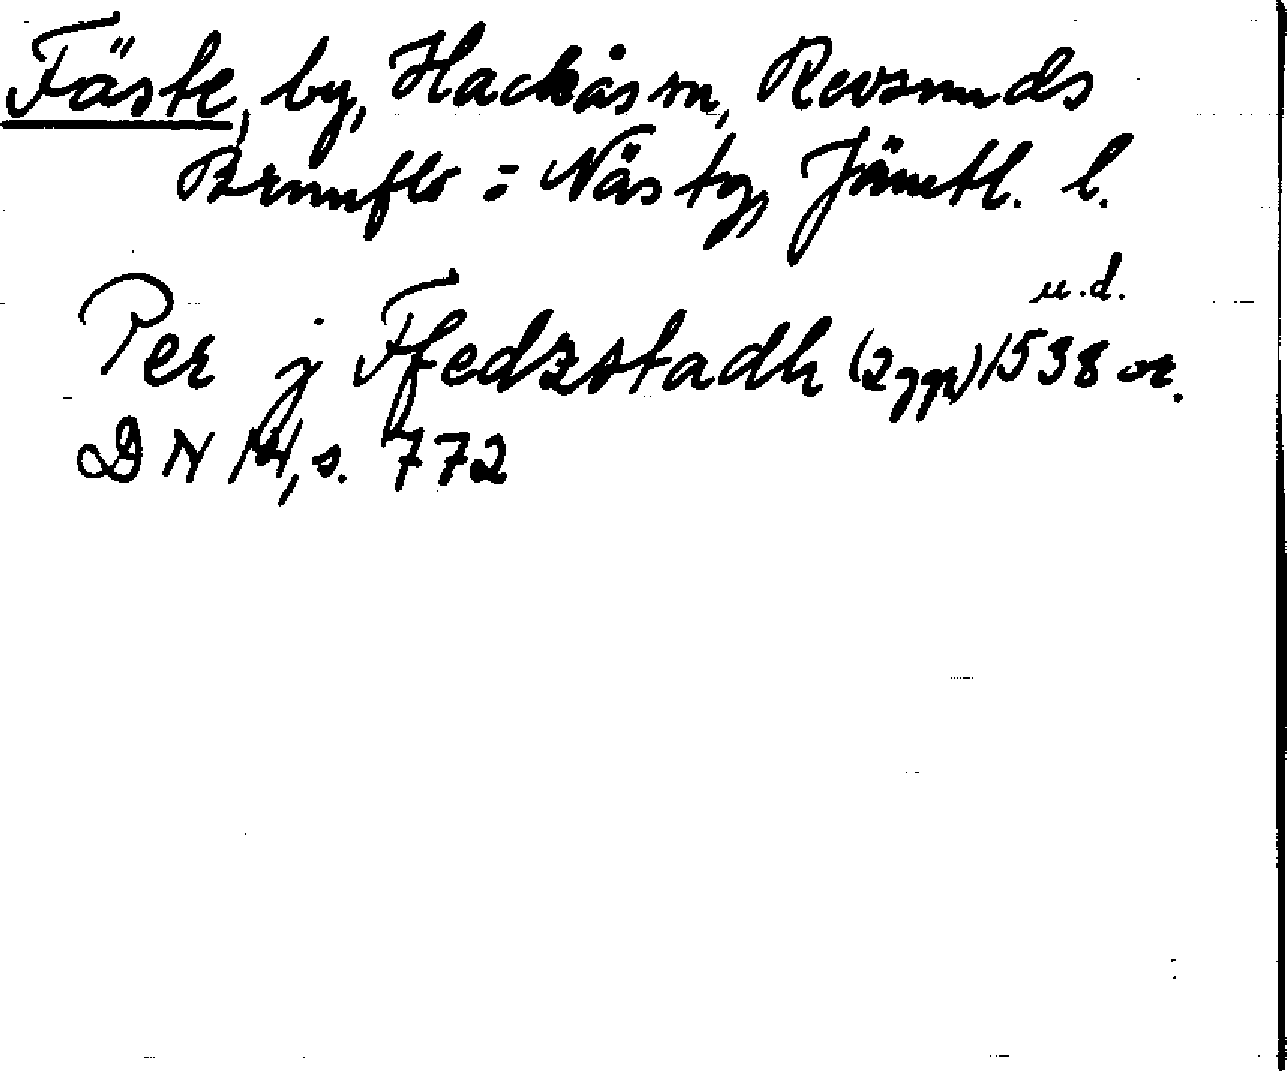 Fäste, by, Hackås sn, Revsunds
Brunflo o Näs tg, Jämtl. l.
u.d.
Per j Ffedzstadh (2 ggr) 1538 or.
DN 14, s. 772